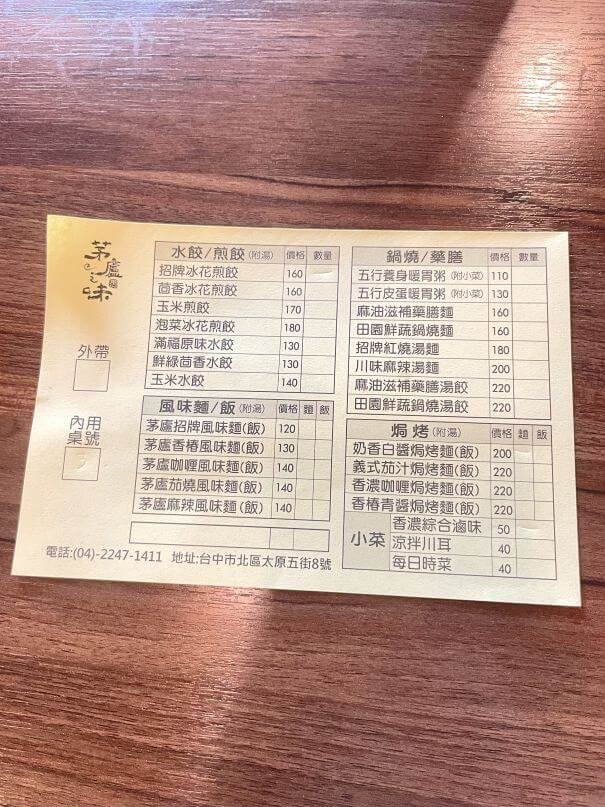 茅廬之味
外帶
內用
桌號
水餃/煎餃(附湯) 價格 數量
招牌冰花煎餃 160
茴香冰花煎餃 160
玉米煎餃 170
泡菜冰花煎餃 180
滿福原味水餃 130
鮮綠茴香水餃 130
玉米水餃 140
風味麵/飯(附湯) 價格 麵 飯
茅廬招牌風味麵(飯) 120
茅廬香椿風味麵(飯) 130
茅廬咖喱風味麵(飯) 140
茅廬茄燒風味麵(飯) 140
茅廬麻辣風味麵(飯) 140
鍋燒/藥膳 價格 數量
五行養身暖胃粥(附小菜) 110
五行皮蛋暖胃粥(附小菜) 130
麻油滋補藥膳麵 160
田園鮮蔬鍋燒麵 160
招牌紅燒湯麵 180
川味麻辣湯麵 200
麻油滋補藥膳湯餃 220
田園鮮蔬鍋燒湯餃 220
焗烤(附湯) 價格 麵 飯
奶香白醬焗烤麵(飯) 200
義式茄汁焗烤麵(飯) 220
香濃咖喱焗烤麵(飯) 220
香椿青醬焗烤麵(飯) 220
小菜
香濃綜合滷味 50
涼拌川耳 40
每日時菜 40
電話:(04)-2247-1411 地址:台中市北區太原五街8號